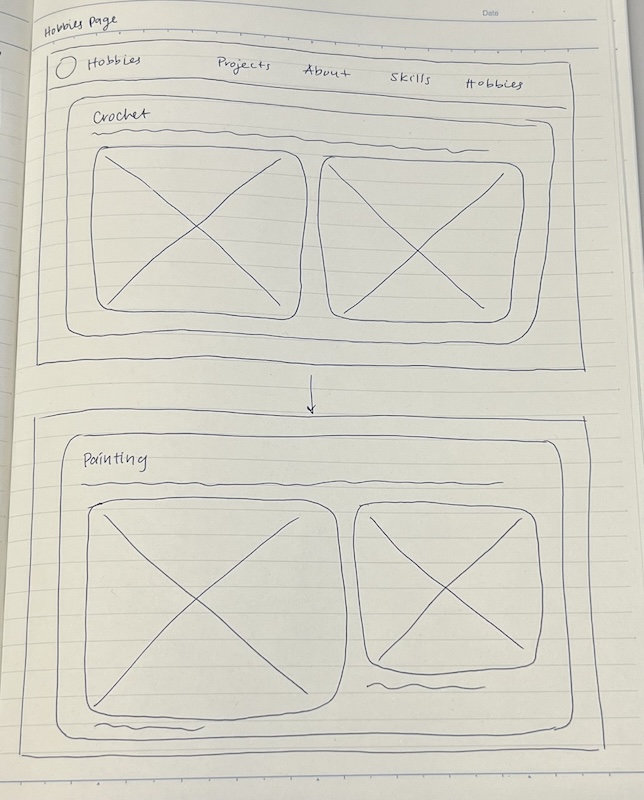 Date
Hobbies Page
Hobbies Projects About Skills Hobbies
Crochet
Painting